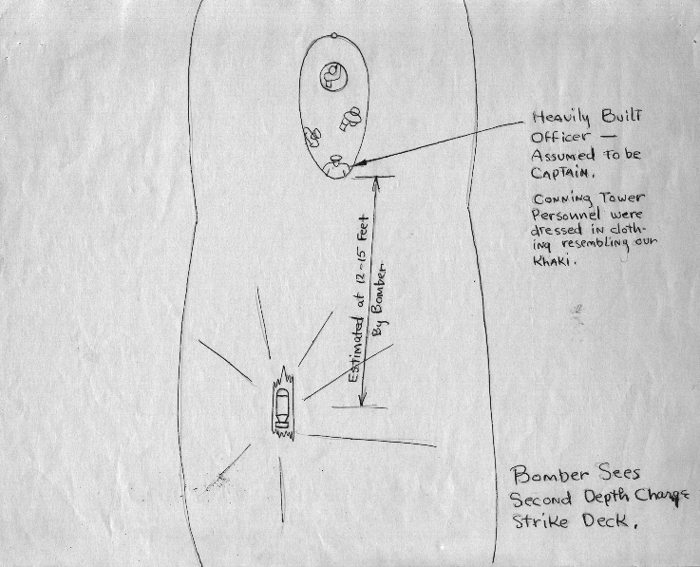 Heavily Built
Officer —
Assumed to be
Captain.
Conning Tower
Personnel were
dressed in cloth-
ing resembling our
Khaki.
Estimated at 12-15 Feet
By Bomber
Bomber Sees
Second Depth Charge
Strike Deck.